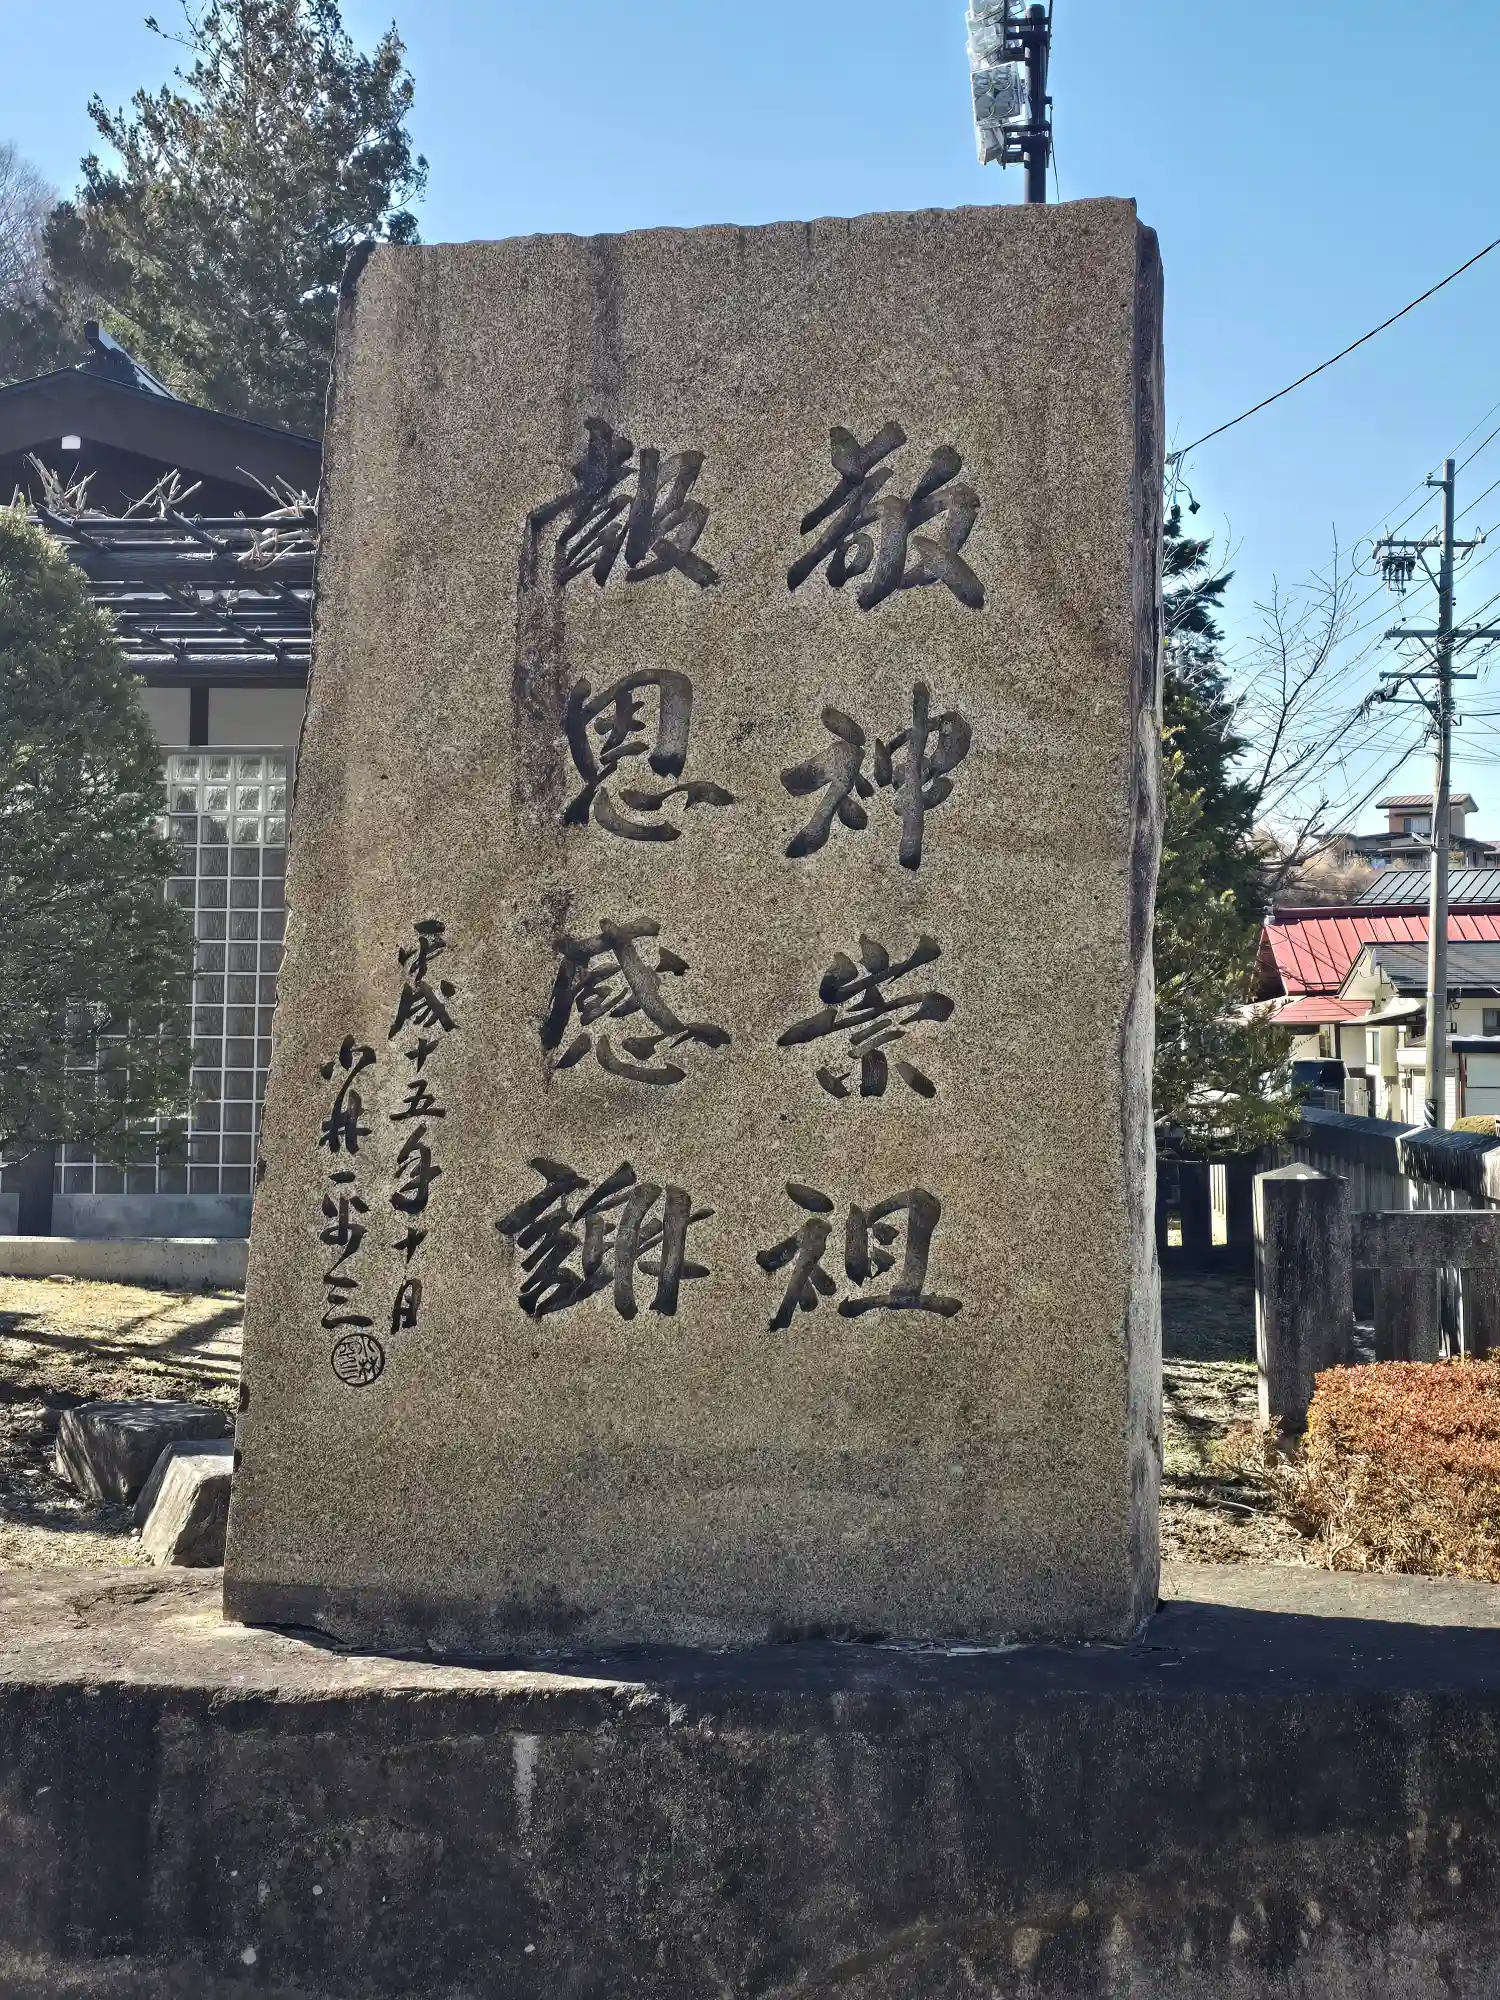 敬神崇祖
報恩感謝
平成十五年十月
小林平三
小林
平三